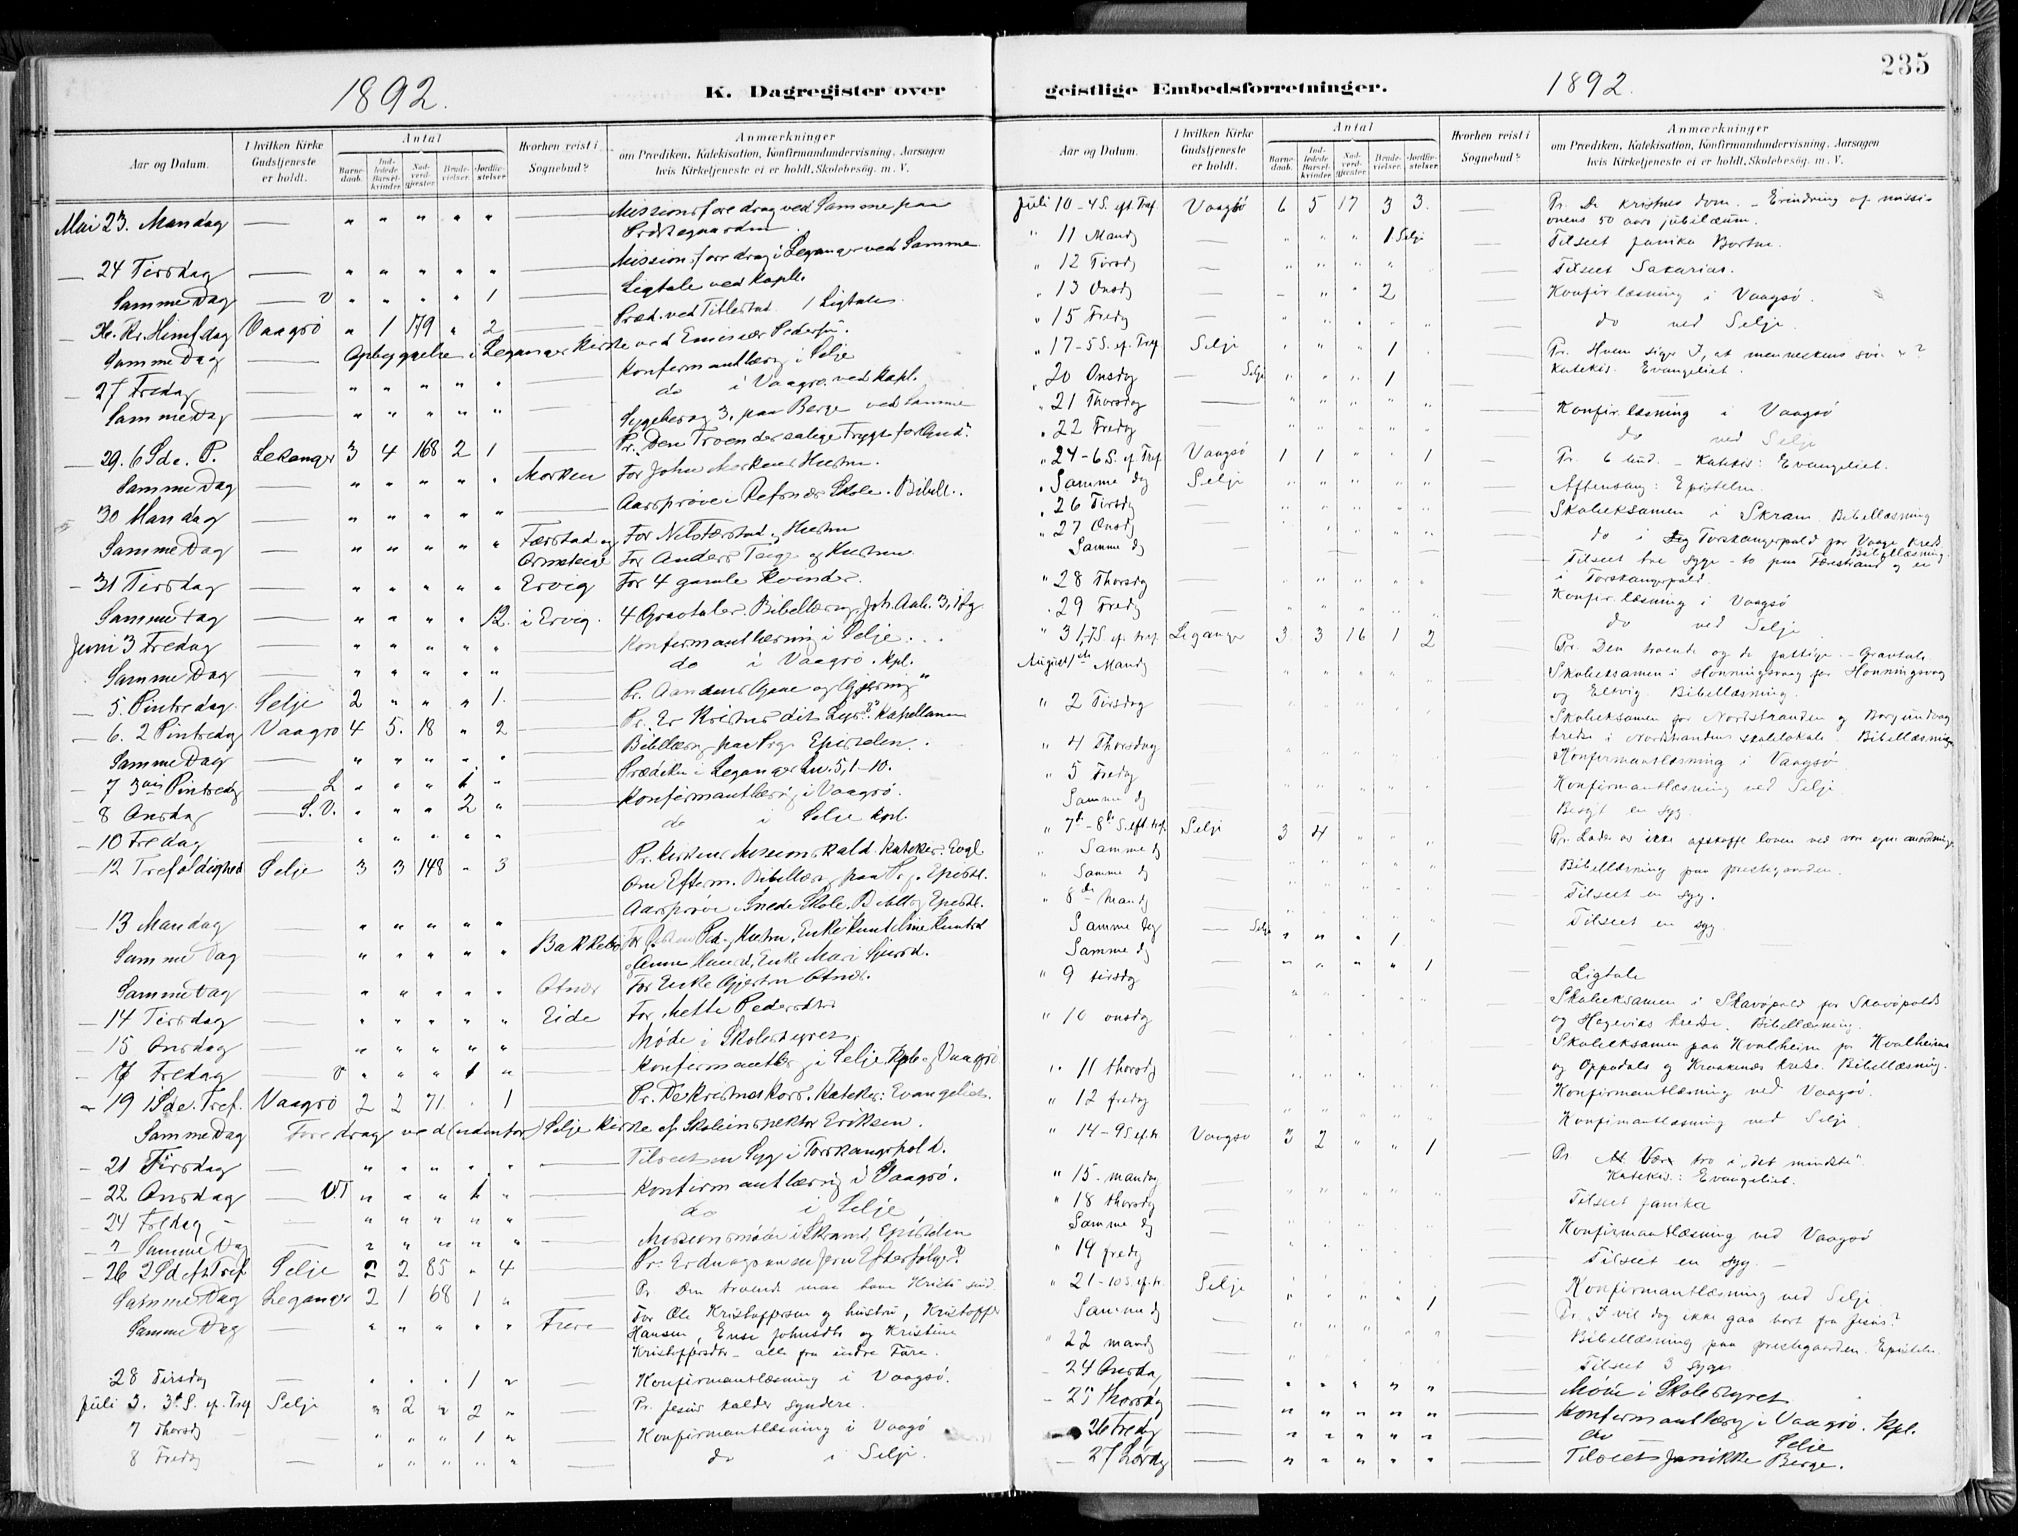 1892.
K. Dagregister over
Aar og Datum.
I hvilken Kirke Gudstjeneste er holdt.
Antal
Barnedaab.
Indledede Barselkvinder.
Nadverdgjester.
Brudevielser.
Jordfæstelser
Hvorhen reist i Sognebud?
Anmærkninger
om Prædiken, Katekisation, Konfirmandundervisning, Aarsagen
hvis Kirketjeneste ei er holdt, Skolebesøg. m. V.
Mai 23. Mandag — " " " " " — Missionsforedrag ved Samme paa
Præstegaarden
— 24 Tirsdag — " " " " " — Missionsforedrag i Leganger ved Samme
Samme Dag — V " " " " 1 — Ligtale ved Kapll.
Kr. Himfdag Vaagsø " 1 179 " 2 — Præd. ved Titlestad. 1 Ligtale
Samme Dag — Opbyggelse i Leganger Kirke ved Emissær Pedersen.
— 27 Fredag — " " " " " — Konfirmantlæsng i Selje
Samme Dag — " " " " " — do i Vaagsø ved Kapl.
Sygebesøg 3, paa Berge ved Samme
— 29. 6 Sde. P. Lekanger 3 4 168 2 1 — Pr. Den Troendes salige
Samme Dag — " " " " " Morken For John Morkens Hustru.
— 30 Mandag — " " " " " — Aarsprøve i Refsnæs Skole. Bibell.
Samme Dag — " " " " " Færstad og For Nils Færstad og Hustru
Ormeteige For Anders Teige og Hustru
— 31 Tirsdag — " " " " " Ervig For 4 gamle Kvinder.
Samme Dag — " " " " 12. i Ervig. 4 Gravtaler. Bibellæsng Joh. Aab. 3,
Juni 3 Fredag — " " " " " — Konfirmantlæsning i Selje.
Samme Dag — " " " " " — do i Vaagsø. Kpl.
— 5. Pintsedag Selje 2 " " " 1. — Pr. Aandens Gave og Gjerning"
— 6. 2 Pintsedag Vaagsø 4 5. 18 " 2 — Pr. Er Kristus dit Lys? Kapellanen
Samme Dag — " " " " " — Bibellæsng paa Prg. Epistelen.
— 7 3die Pintsedag — L " " " 1 " — Prædiken i Leganger Lu. 5, 1-10.
— 8 Onsdag — S. V. " " " 2 " — Konfirmantlæsng i Vaagsø.
— 10 Fredag — " " " " " — do i Selje Kpl.
— 12 Trefoldighed Selje 3 3 148 " 3 — Pr. Kirkens Missionskald Katekes. Evgl.
Om Efterm. Bibellæsng paa Prg. Epistl.
— 13 Mandag — " " " " " — Aarsprøve i Skole. Bibellg Epistl.
Samme Dag — " " " " " Bakkebø
Enke Mari
Samme Dag — " " " " " Otnæs For Enke Otnæs.
— 14 Tirsdag — " " " " " Eide For Mette Pedersdtr
— 15 Onsdag — " " " " " — Møde i Skolestyret
— 17 Fredag — V " " " 1 " — Konfirmantl g i Selje Kpl. g Vaagsø
— 19 1 Sde. Tref. Vaagsø 2 2 71 . 1 — Pr. De Kristnes Kors. Katekes: Evangeliet.
Samme Dag Foredrag ved (udenfor) Selje Kirke af Skoleinspektør Eriksen.
— 21 Tirsdag — " " " " " — Tilseet en Syg i Torskangerpold.
— 22. Onsdag — V.T " " " 1 " — Konfirmantlæsng i Vaagsø.
— 24 Fredag — " " " " " — do i Selje
— Samme Dag — " " " " " — Missionsmøde i Skram, Epistelen
— 26 2 Sd eft Tref. Selje 2 2 85 " 4 — Pr. Er du ogsaa en Efterfølger?
Samme Dag Leganger 2 1 68 1 " — Pr. Den troende maa have Kristi sind
Samme Dag — " " " " " Frere For Ole Kristoffersen og hustru, Kristoffer
Hansen, Ense Johnsdtr og Kristine
Kristoffersdtr — alle fra indre Fure.
28 Tirsdag — . . . 1 " — Konfirmantlæsning i Vaagsø.
Juli 3. 3die S. ef. Tref Selje " 2 " 2 " — Pr. Jesus kalder syndere.
7 Thorsdg — " " " 1 " — Konfirmantlæsning i Vaagsø
8 Fredag — " " " " " — do i Selje.
235
geistlige Embedsforretninger.
1892.
Aar og Datum.
I hvilken Kirke Gudstjeneste er holdt.
Antal
Barnedaab.
Indledede Barselkvinder.
Nadverdgjester.
Brudevielser.
Jordfæstelser
Hvorhen reist i Sognebud?
Anmærkninger
om Prædiken, Katekisation, Konfirmandundervisning, Aarsagen
hvis Kirketjeneste ei er holdt, Skolebesøg. m. V.
Juli 10 - 4 S. eft. Tref. Vaagsø 6 5 17 3 3. — Pr. De kristnes dom. — Erindring af missi-
onens 50 aars jubilæum.
" 11 Mandg — " " " 1 Selje — Tilseet Janika Bortne.
" 12 Tirsdg — " " " " " — Tilseet Sakarias.
" 13 Onsdg — " " " 2 — Konfir. læsning i Vaagsø.
" 15 Fredg — " " " " " — do ved Selje.
" 17 - 5 S. ef. Tref Selje " " " 1 . — Pr. Hvem sige I, at menneskens søn er?
Katekis. Evangeliet.
" 20 Onsdg — Selje " " " 1 "
" 21 Thorsdag — " " " " " — Konfir. læsning i Vaagsø
" 22 Fredg — " " " " " — do ved Selje
" 24 - 6 S. ef. Tref Vaagsø 1 1 " " 1 — Pr. 6 bud. — Katekis: Evangeliet.
" Samme dg Selje " " " " " — Aftensang: Epistelen
" 26 Tirsdg — " " " " " — Skoleeksamen i Skram. Bibellæsning
" 27 Onsdg — " " " " " — do i Torskangerpold for Vaage Kreds
Bibellæsning.
Samme dg — Tilseet tre syge - to paa Færestrand og en
i Torskangerpold.
" 28 Thorsdg — " " " " " — Konfir. læsning i Vaagsø
" 29 Fredg — " " " " " — do ved Selje
" 31, 7 S. ef. Tref. Leganger 3. 3 16 1 2 — Pr. Den troende og de fattige. — Gravtale
August 1ste Mandg — " " " " " — Skoleeksamen i Honningsvaag for Honningsvaag
og Eltvig. Bibellæsning.
" 2 Tirsdag — " " " " " — Skoleeksamen for Nordstranden og Borgundvaag
krede i Nordstrandens skolelokale. Bibellæsning
" 4 Thorsdag — " " " " " — Konfirmantlæsning i Vaagsø
" 5 Fredag — " " " " " — Konfirmantlæsning ved Selje.
Samme dg — Besøgt en syg.
" 7de - 8de S. eft. tref. Selje 3 4 " " " — Pr. Lader os ikke afskaffe loven ved vore egne anordninger
" Samme dg — Bibellæsning paa prestegaarden.
" Samme dg — Tilseet en syg.
" 8de Mandg — Tilseet en syg
Samme dag — Selje " " " 1 "
Samme dg — " " " " 1 — Ligtale
" 9 tirsdg — " " " " " — Skoleeksamen i Skavøpold for Skavøpolds
og Hagevigs krede. Bibellæsning.
" 10 onsdg — Skoleeksamen paa Kvalheim for Kvalheims
og Oppedals og Kraakenæs krede. Bibellæsning.
" 11 thorsdg — Konfirmantlæsning ved Vaagsø.
" 12 fredag — Konfirmantlæsning ved Selje
" 14 - 9 S. ef. tr. Vaagsø 3 2 " " 1 — Pr. Være tro i "det mindste".
Katekis.: Evangeliet.
" 15. mandag — Tilseet Janika
" 18 thorsdg — Konfirmantlæsning ved Vaagsø
Samme dg — Tilseet en syg. —
" 19 fredg — Konfirmantlæsning ved Selje
" 21 - 10 S. ef. tr. Selje " " " " " — Pr. "I vil dog ikke gaa bort fra Jesus?
Samme dg — " " " " 1 — Bibellæsning paa prestegaarden. Epistelen.
" 22 mandg — Tilseet 3 syge
— 24 Onsdag — " " " " " — Møde i Skolestyret
— 25 thorsdag — " " " " " — Konfirmantlæsng i Vaagsø. Kpl.
— 26 Fredg — " " " " " — do — Selje
— 27 Lørdg — " " " " " — Tilseet Janikke Berge.